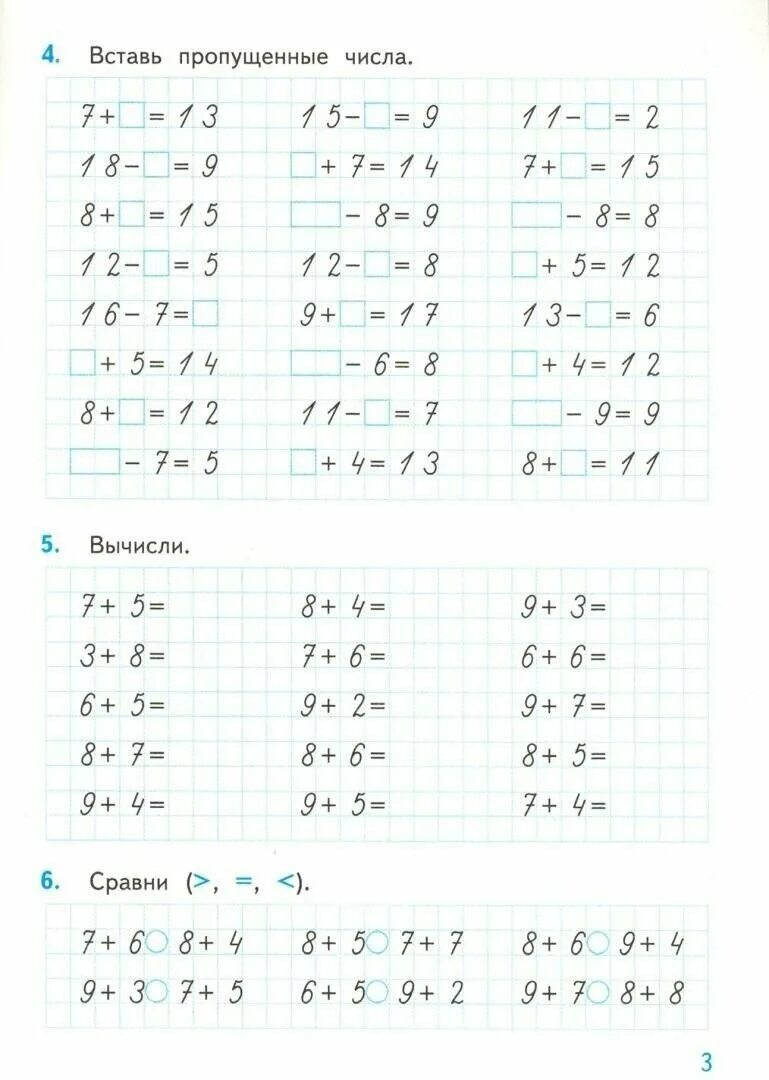 4. Вставь пропущенные числа.
7+□=13 15-□=9 11-□=2
18-□=9 □+7=14 7+□=15
8+□=15 □-8=9 □-8=8
12-□=5 12-□=8 □+5=12
16-7=□ 9+□=17 13-□=6
□+5=14 □-6=8 □+4=12
8+□=12 11-□=7 □-9=9
□-7=5 □+4=13 8+□=11
5. Вычисли.
7+5= 8+4= 9+3=
3+8= 7+6= 6+6=
6+5= 9+2= 9+7=
8+7= 8+6= 8+5=
9+4= 9+5= 7+4=
6. Сравни (>, =, <).
7+6○8+4 8+5○7+7 8+6○9+4
9+3○7+5 6+5○9+2 9+7○8+8
3